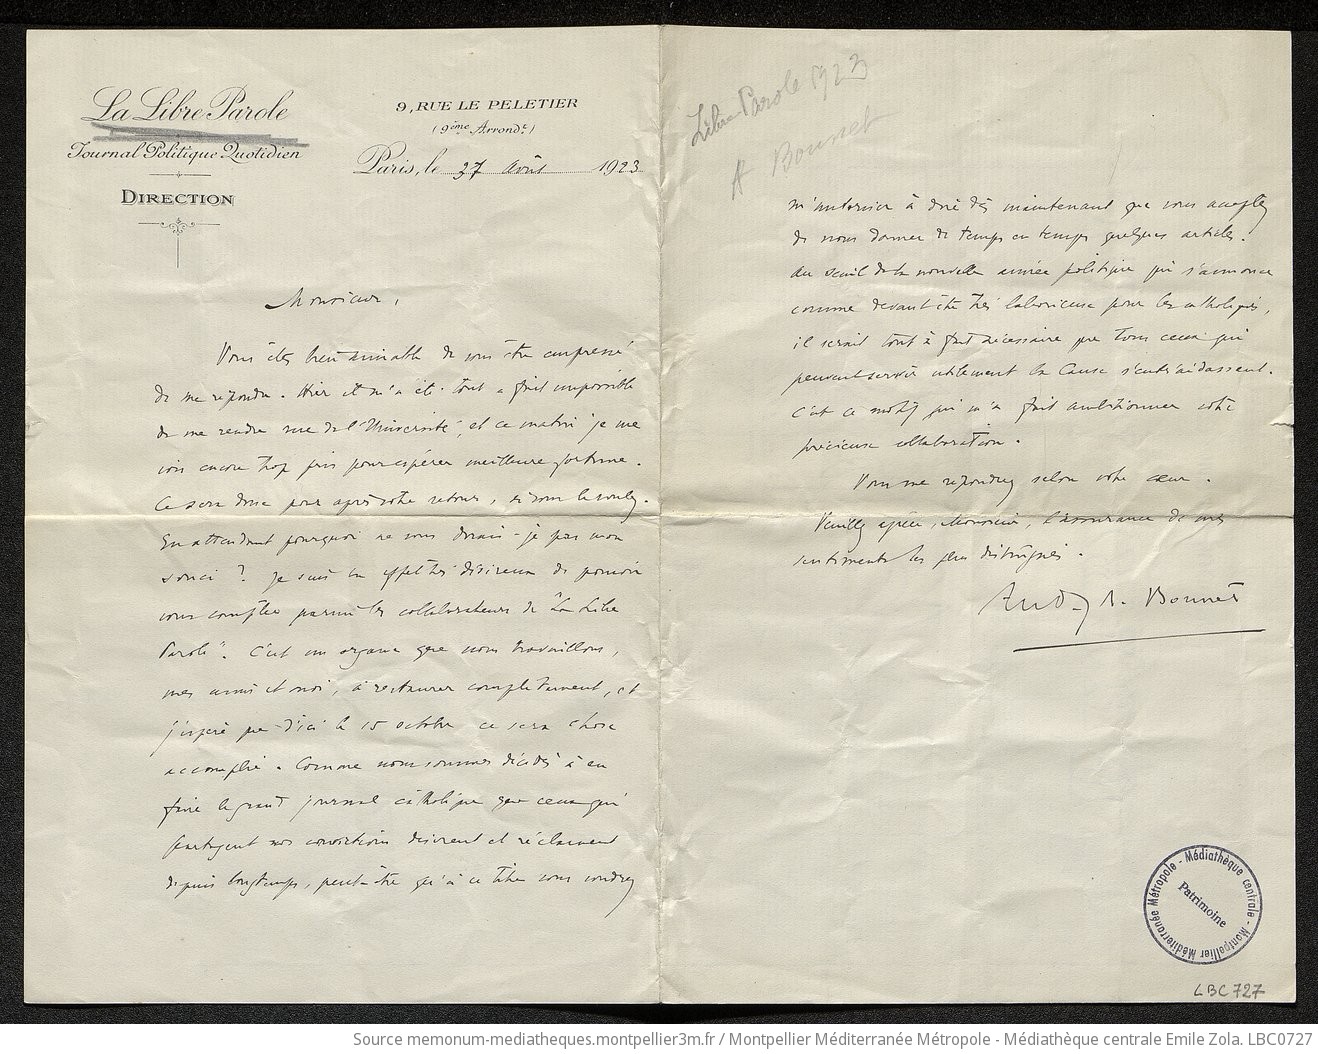 La Libre Parole
Journal Politique Quotidien
DIRECTION
9, RUE LE PELETIER
(9ème Arrondt.)
Paris, le 27 Août 1923
Monsieur,
Vous êtes bien aimable de vous être empressé
de me répondre. Hier il m'a été tout à fait impossible
de me rendre rue de l'Université, et ce matin je me
vois encore trop pris pour espérer meilleure fortune.
Ce sera donc pour après votre retour, si vous le voulez.
En attendant pourquoi ne vous dirais-je pas mon
souci ? Je suis en effet très désireux de pouvoir
vous compter parmi les collaborateurs de "La Libre
Parole". C'est un organe que nous travaillons,
mes amis et moi, à restaurer complètement, et
j'espère que d'ici le 15 octobre ce sera chose
accomplie. Comme nous sommes décidés à en
faire le grand journal catholique que ceux qui
partagent nos convictions désirent et réclament
depuis longtemps, peut-être qu'à ce titre vous voudrez
Libre Parole 1923
A Bonnet
m'autoriser à dire dès maintenant que vous acceptez
de nous donner de temps en temps quelques articles.
Au seuil de la nouvelle année politique qui s'annonce
comme devant être très laborieuse pour les catholiques,
il serait tout à fait nécessaire que tous ceux qui
peuvent servir utilement la Cause s'entr'aidassent.
C'est ce motif qui m'a fait ambitionner votre
précieuse collaboration.
Vous me répondrez selon votre cœur.
Veuillez agréer, Monsieur, l'assurance de mes
sentiments les plus distingués.
A. Bonnet
Médiathèque centrale - Montpellier Méditerranée Métropole -
Patrimoine
LBC 727
Source memonum-mediatheques.montpellier3m.fr / Montpellier Méditerranée Métropole - Médiathèque centrale Emile Zola. LBC0727